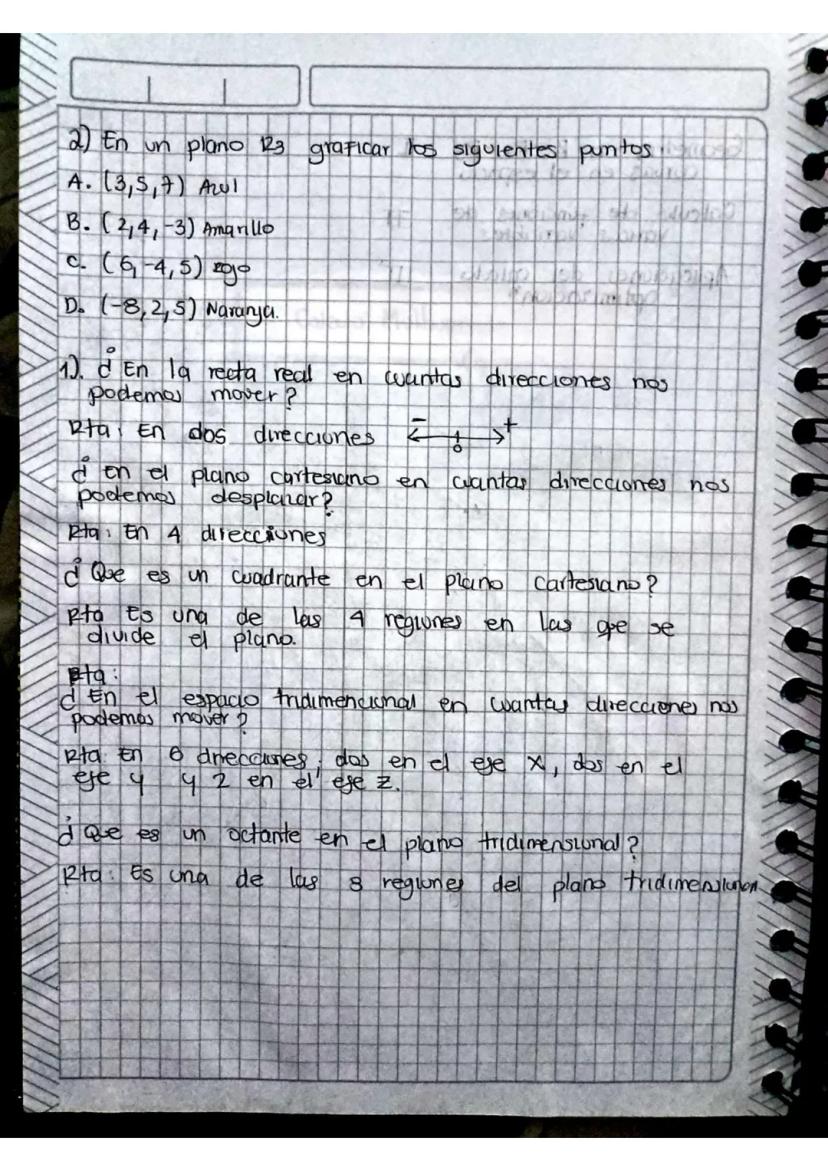 2) En un plano R3 graficar los siguientes puntos.
A. (3,5,7) Azul
B. (2,4,-3) Amarillo
C. (6,-4,5) rojo
D. (-8,2,5) Naranja.
1). ¿ En la recta real en cuantas direcciones nos
podemos mover?
Rta: En dos direcciones - 0 +
¿ en el plano cartesiano en cuantas direcciones nos
podemos desplazar?
Rta: En 4 direcciones
¿ Que es un cuadrante en el plano cartesiano?
Rta Es una de las 4 regiones en las que se
divide el plano.
Rta:
¿ En el espacio tridimencional en cuantas direcciones nos
podemos mover?
Rta: En 6 direcciones, dos en el eje x, dos en el
eje y y 2 en el eje z.
¿ Que es un octante en el plano tridimensional?
Rta: Es una de las 8 regiones del plano tridimensional